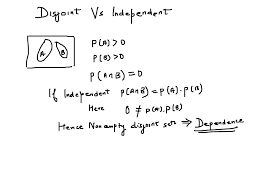 Disjoint Vs Independent
A B
P(A) > 0
P(B) > 0
P(A∩B) = 0
If Independent P(A∩B) = P(A).P(B)
Here 0 ≠ P(A).P(B)
Hence Nonempty disjoint sets ⇒ Dependence